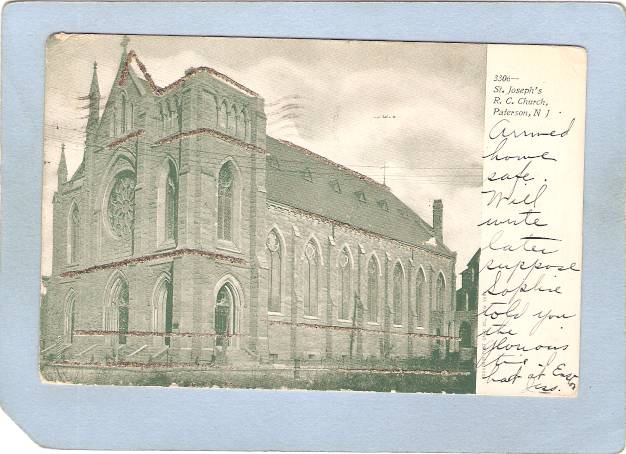 3306—
St. Joseph's
R. C. Church,
Paterson, N J
Arrived
home
safe.
Will
write
later
suppose
Sophie
told you
the
glorious
time I
had at